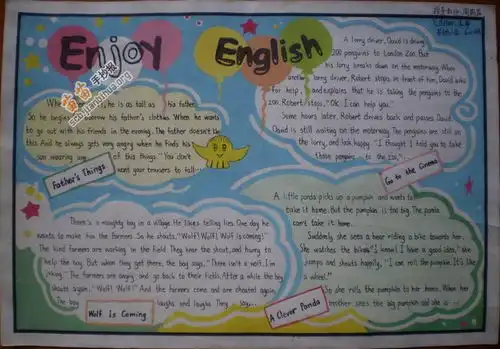 Enjoy English
A lorry driver, David is driving
200 penguins to London Zoo. But
his lorry breaks down on the motorway. When
another lorry driver, Robert stops in front of him, David asks
for help, and explains that he is taking the penguins to the
zoo. Robert stops, "Ok. I can help you."
Some hours later, Robert drives back and passes David.
David is still waiting on the motorway. The penguins are still on
the lorry, and look happy. "I thought I told you to take
those penguins to the zoo,"
Go to the Cinema
he is as tall as his father.
So he begins to borrow his father's clothes when he wants
to go out with his friends in the evening. The father doesn't like
this. And he always gets very angry when he finds his
son wearing any of his things. "You don't
want your trousers to fall
Father's Things
There is a naughty boy in a village. He likes telling lies. One day he
wants to make fun the farmers. So he shouts, "Wolf! Wolf! Wolf is coming!"
The kind farmers are working in the field. They hear the shout, and hurry to
help the boy. But when they get there, the boy says, "There isn't a wolf. I'm
joking." The farmers are angry and go back to their fields. After a while the boy
shouts again, "Wolf! Wolf!" And the farmers come and are cheated again.
The boy laughs and laughs. They say,
Wolf is Coming
A little panda picks up a pumpkin and wants to
take it home. But the pumpkin is too big. The panda
can't take it home.
Suddenly she sees a bear riding a bike towards her.
She watches the bike. "I know! I have a good idea," she
jumps and shouts happily, "I can roll the pumpkin. It's like
a wheel."
So she rolls the pumpkin to her home. When her
mother sees the big pumpkin and she is
A Clever Panda
手抄报
shouchaobao.org